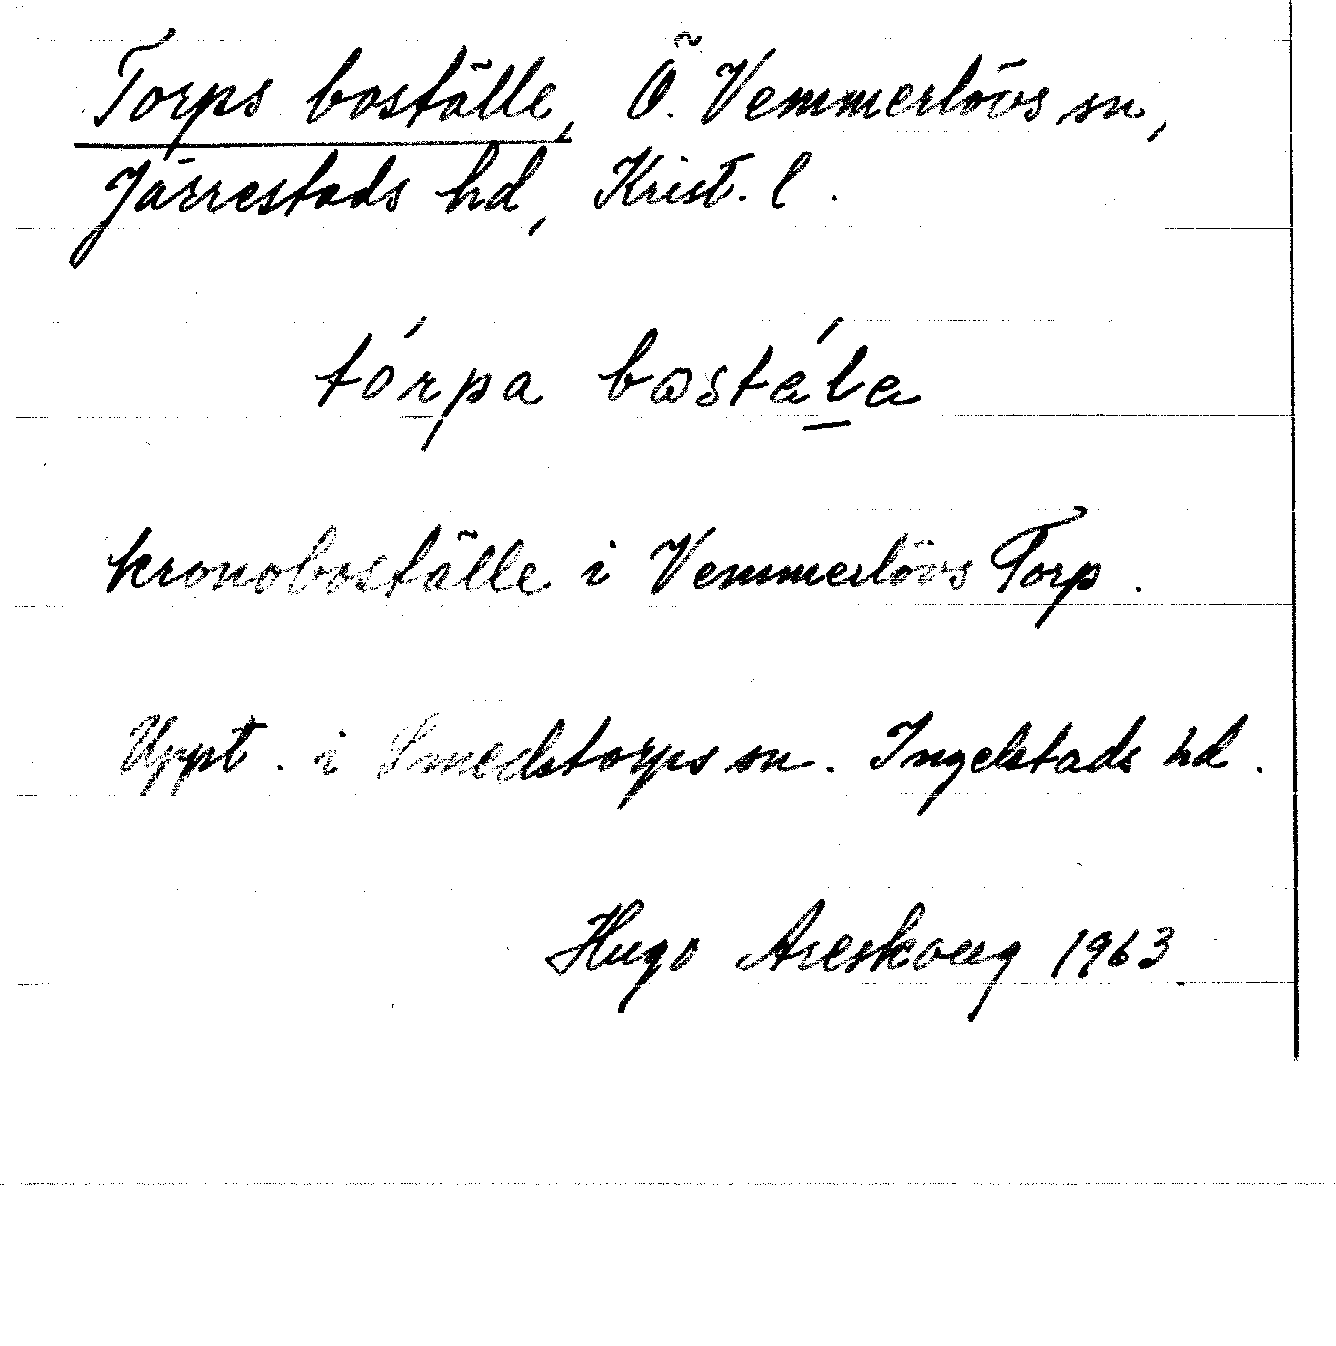 Torps boställe, Ö. Vemmerlövs sn,
Järrestads hd, Krist. l.
tórpa bostála
kronoboställe i Vemmerlövs Torp.
Uppt. i Smedstorps sn. Ingelstads hd.
Hugo Areskoug 1963